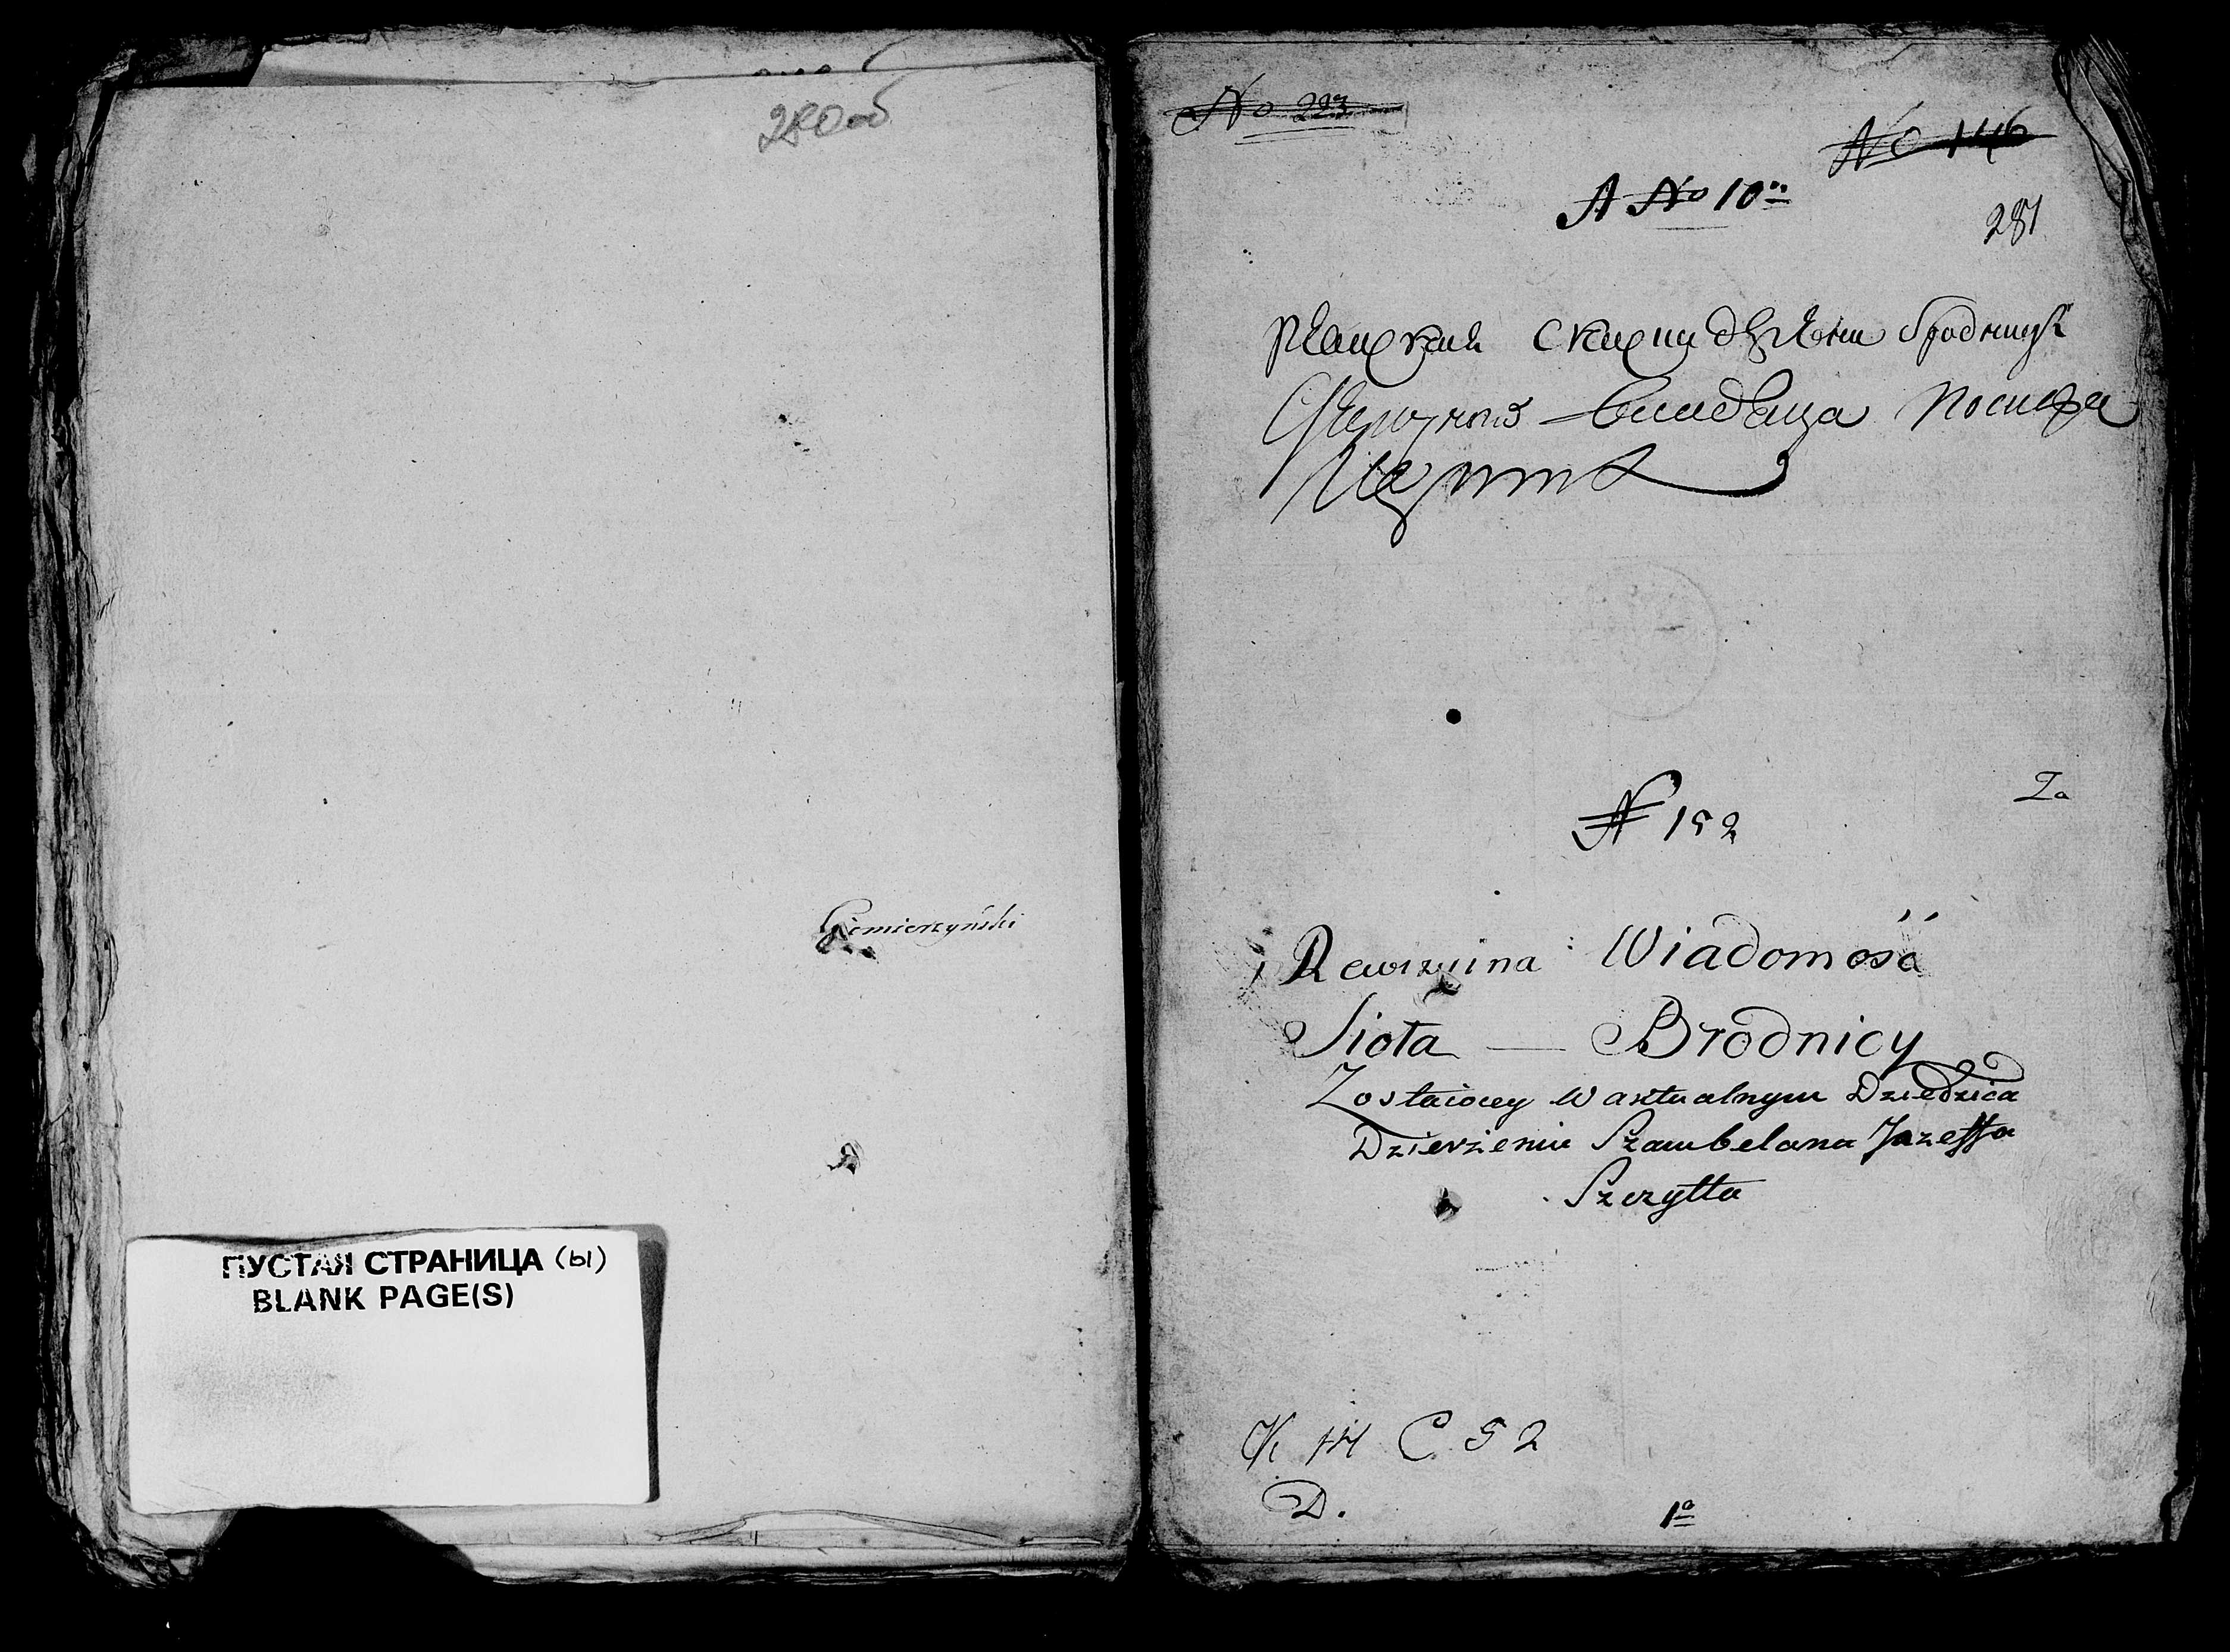 280об
Giemierzyński
ПУСТАЯ СТРАНИЦА (ы)
BLANK PAGE(S)
No 223
No 146
A No 10
281
Бродницы
Иосифа
N 152
Rewizyina Wiadomość
Sioła — Brodnicy
Zostaiącey w aktualnym Dziedzica
Dzierżeniu Szambelana Jozeffa
Szczytta
K 14 C 52
D.
1a